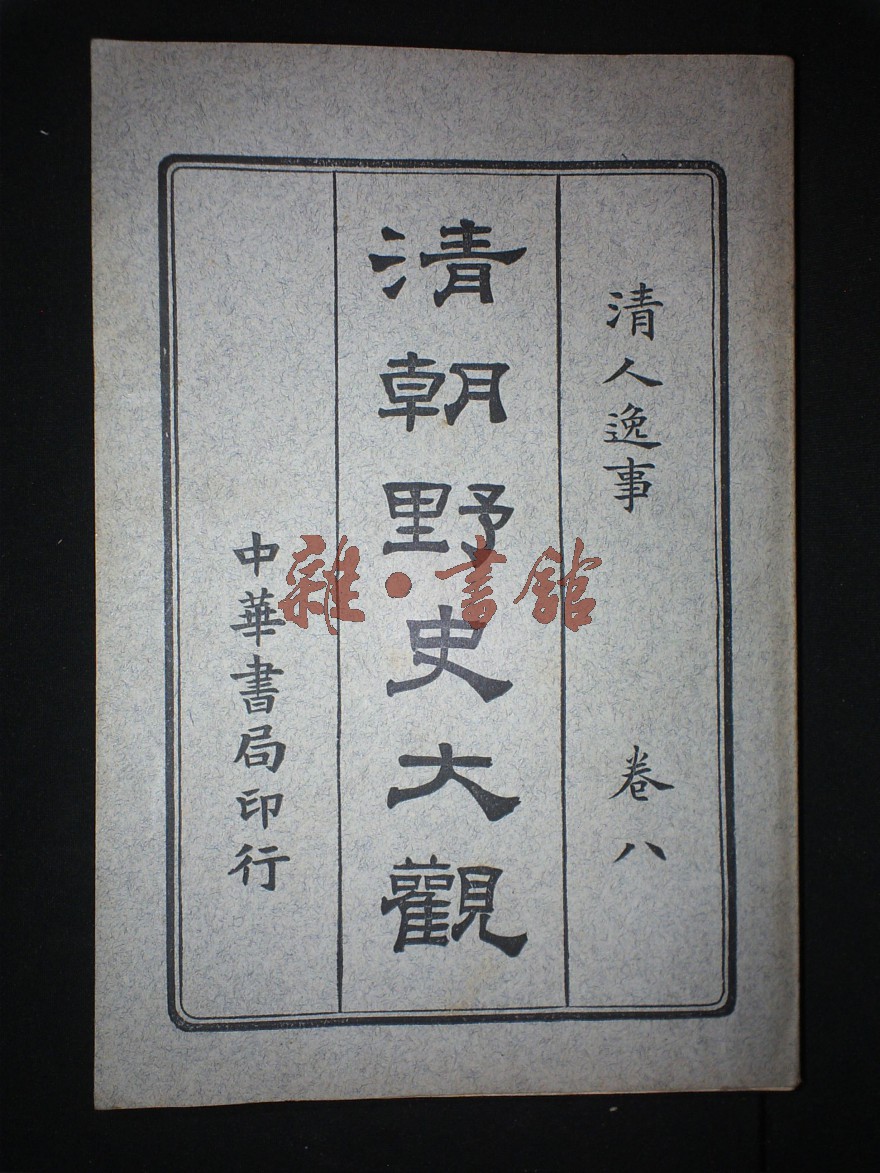 清人逸事 卷八
清朝野史大觀
中華書局印行
雜·書館